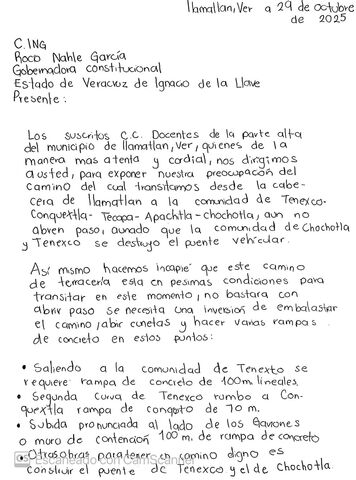 Ilamatlan, Ver a 29 de octubre
de 2025
C. ING
Roco Nahle García
Gobernadora constitucional
Estado de Veracruz de Ignaco de la Llave
Presente:
Los suscritos C.C. Docentes de la parte alta
del municipio de Ilamatlan, Ver, quienes de la
manera mas atenta y cordial, nos dirgimos
a usted, para exponer nuestra preocupación del
camino del cual transitamos desde la cabe-
cera de Ilamatlan a la comunidad de Tenexco-
Conquextla- Tecapa- Apachtla- chochotla, aun no
abren paso, aunado que la comunidad de Chochotla
y Tenexco se destruyo el puente vehicular.
Así mismo hacemos incapie que este camino
de terraceria esta en pesimas condiciones para
transitar en este momento, no bastara con
abrir paso se necesita una inversion de embalastrar
el camino, abir cunetas y hacer varias rampas
de concreto en estos puntos:
• Saliendo a la comunidad de Tenexto se
requiere rampa de concreto de 100 m. lineales.
• Segunda curva de Tenexco rumbo a Con-
quextla rampa de conqreto de 70 m.
• Subida pronunciada al lado de los Gaviones
o muro de contención 100 m. de rampa de concreto
• Otras obras para tener un camino digno es
Escaneado con CamScanner
construir el puente de Tenexco y el de Chochotla.